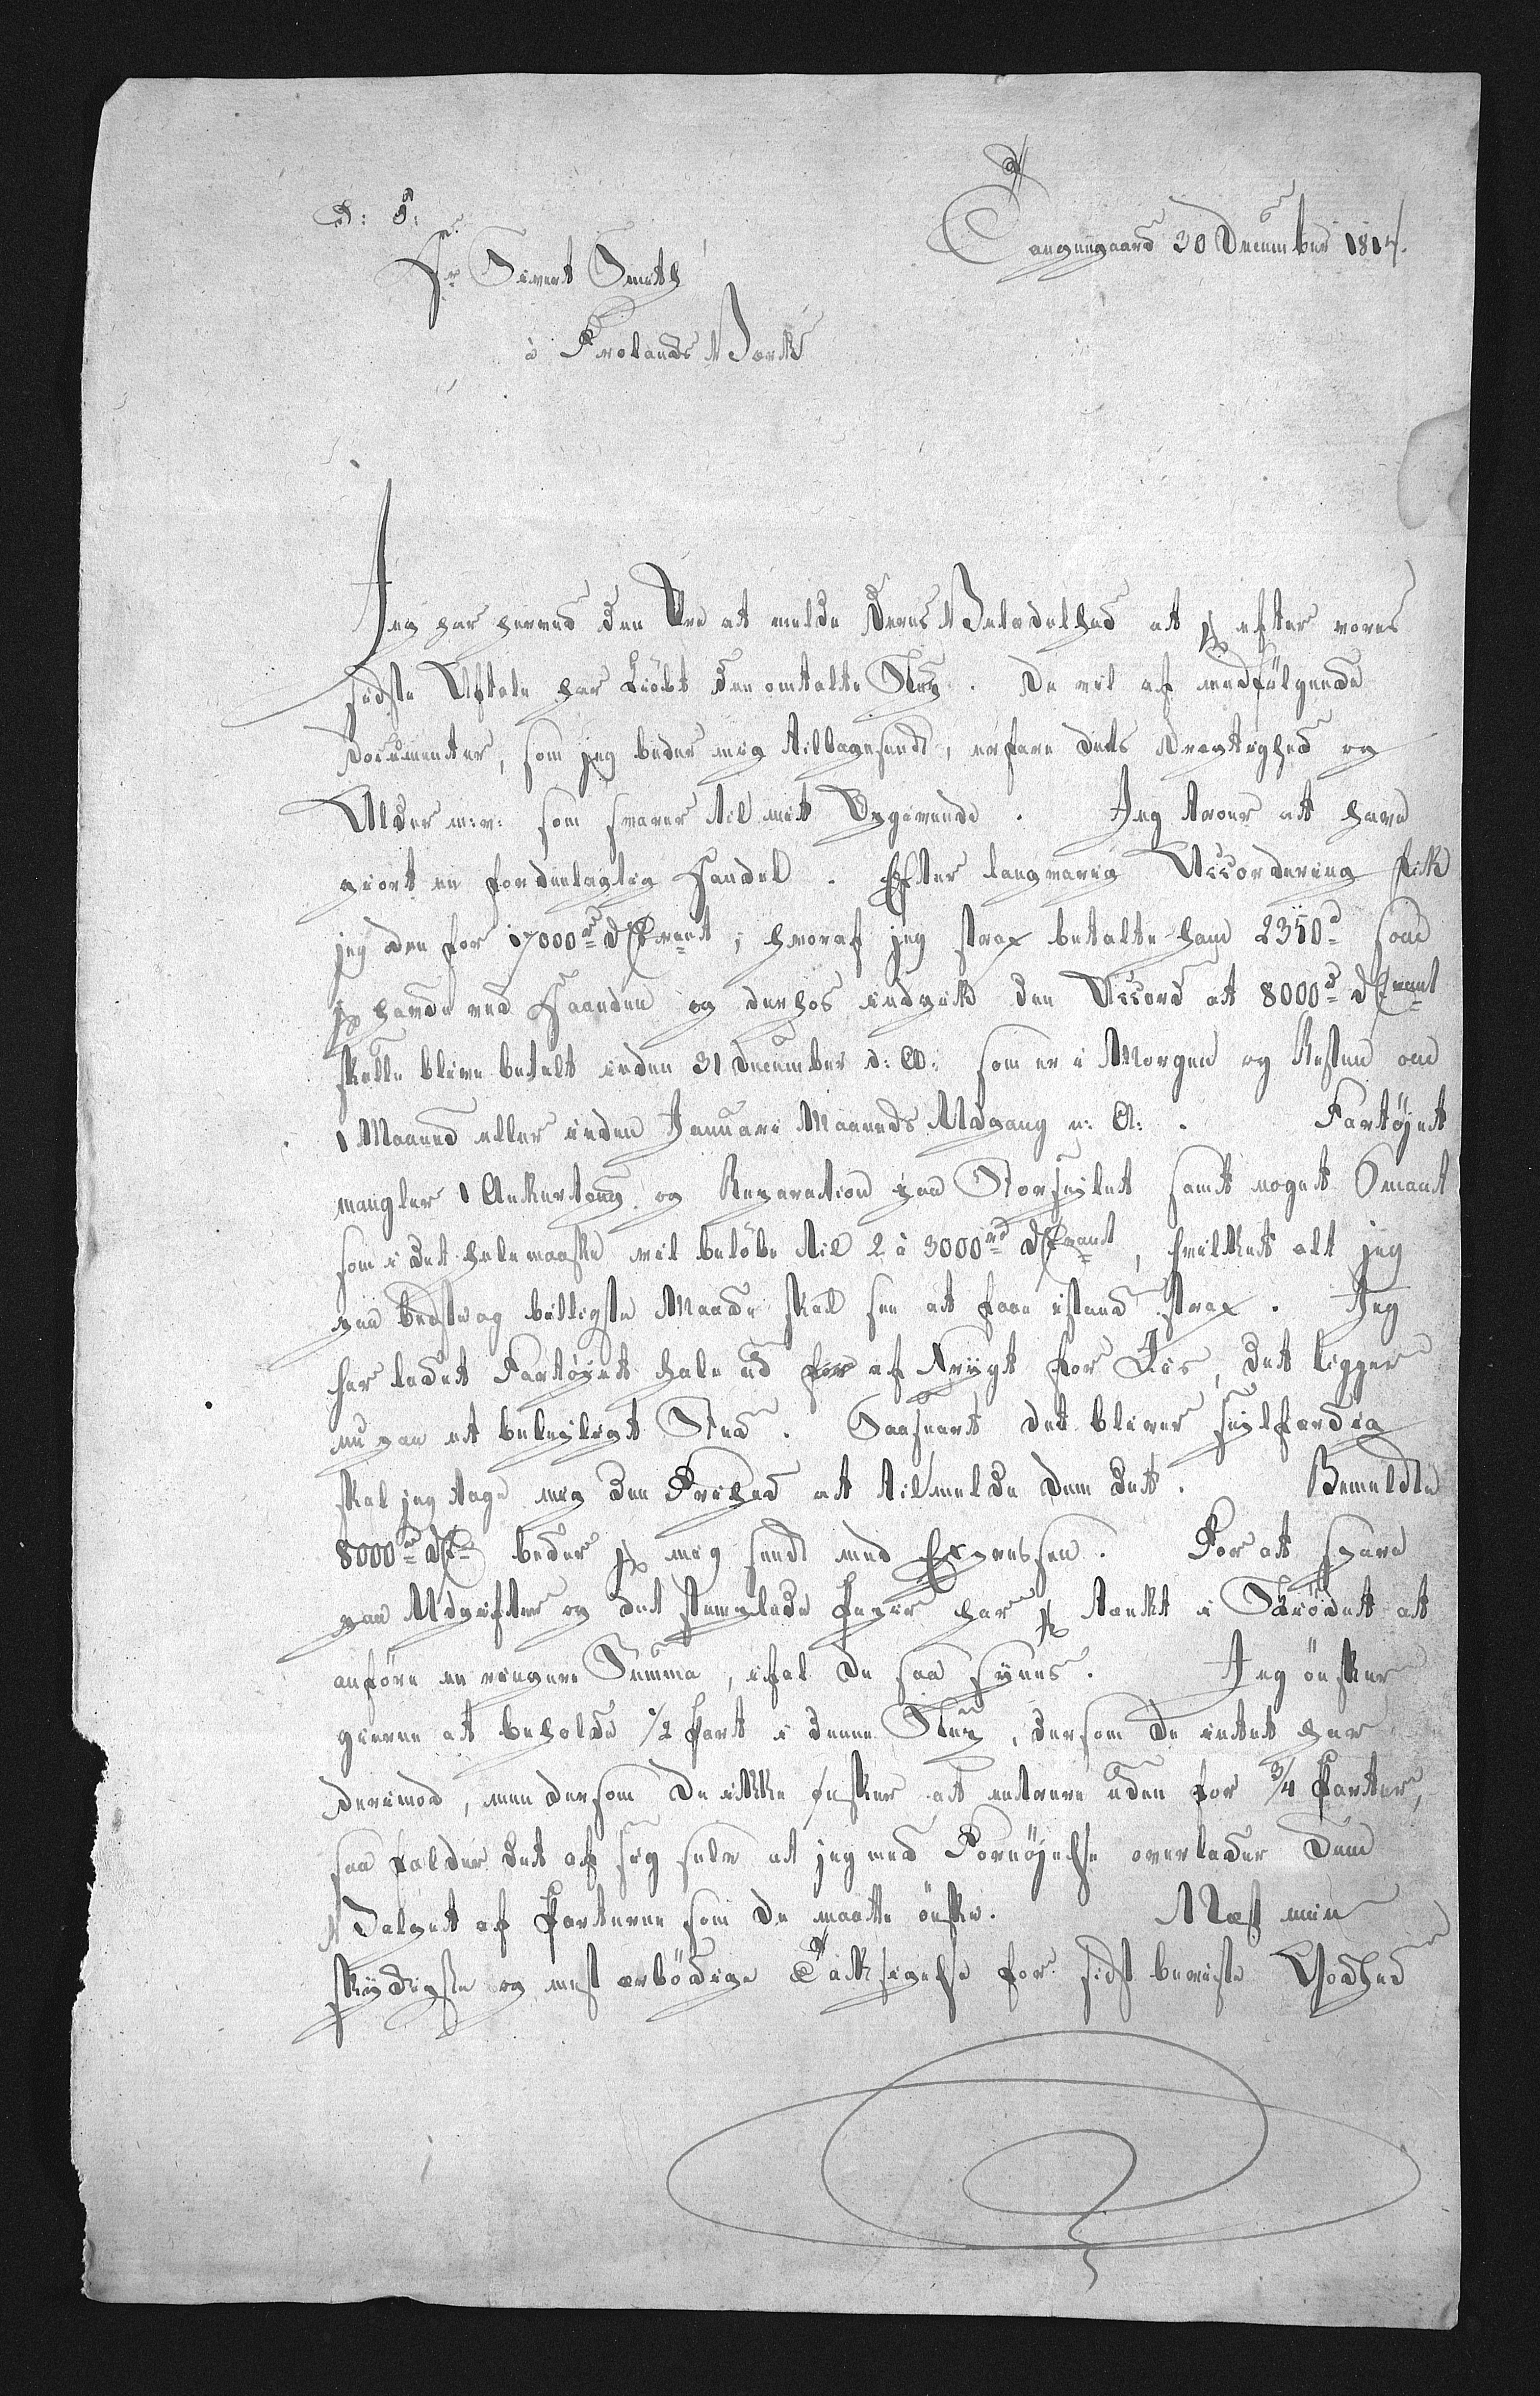 S: T:
Tangengaard 30 December 1814.
Hr Sivert Smith
à Frolands Værk
Jeg har herved den Ære at melde Deres Velædelhed at jeg efter vores
sidste Aftale har kiöbt den omtalte Slup. De vil af medfölgende
Documenter, som jeg beder mig tilbagesendt, erfare dets Drægtighed og
Alder m: v: som svarer til mit Opgivende. Jeg troer at have
giort en fordeelagtig Handel. Efter langvarig Accordering fik
jeg den for 17000rd D Courant, hvoraf jeg strax betalte ham 2350rd som
jeg havde ved Haanden og derhos indgik den Accord at 8000rd D Courant
skulle blive betalt inden 31 December d: A: som er i Morgen og Resten om
1 Maaned eller inden Januari Maaneds Udgang n: A: . Fartöjet
mangler 1 Ankertoug og Reparation paa Storseylet samt noget Smaat
som i det hele maaske vil belöbe til 2 à 3000rd D Courant, hvilket alt jeg
paa bedste og billigste Maade skal see at faae istand strax. Jeg
har ladet Fartöjet hale ud for af Frygt for Iis, det ligger
nu paa et beleyligt Sted. Saasnart det bliver seylfærdig
skal jeg tage mig den Frihed at tilmelde Dem det. Bemeldte
8000rd D C beder jeg mig sendt med Expressen. For at spare
paa Udgifter og det stemplede Papir har jeg tænkt i Skiödet at
anföre en ringere Summa, ifal De saa synes. Jeg önsker
gierne at beholde 1/2 Part i denne Slup, dersom De intet har
derimod, men dersom De ikke önsker at entrere uden for 3/4 Parter,
saa falder det af sig selv at jeg med Fornöjelse overlader Dem
Valget af Parterne som De maatte önske. Næst min
skyldigste og mest ærbödige Taksigelse for sidst beviste Godhed